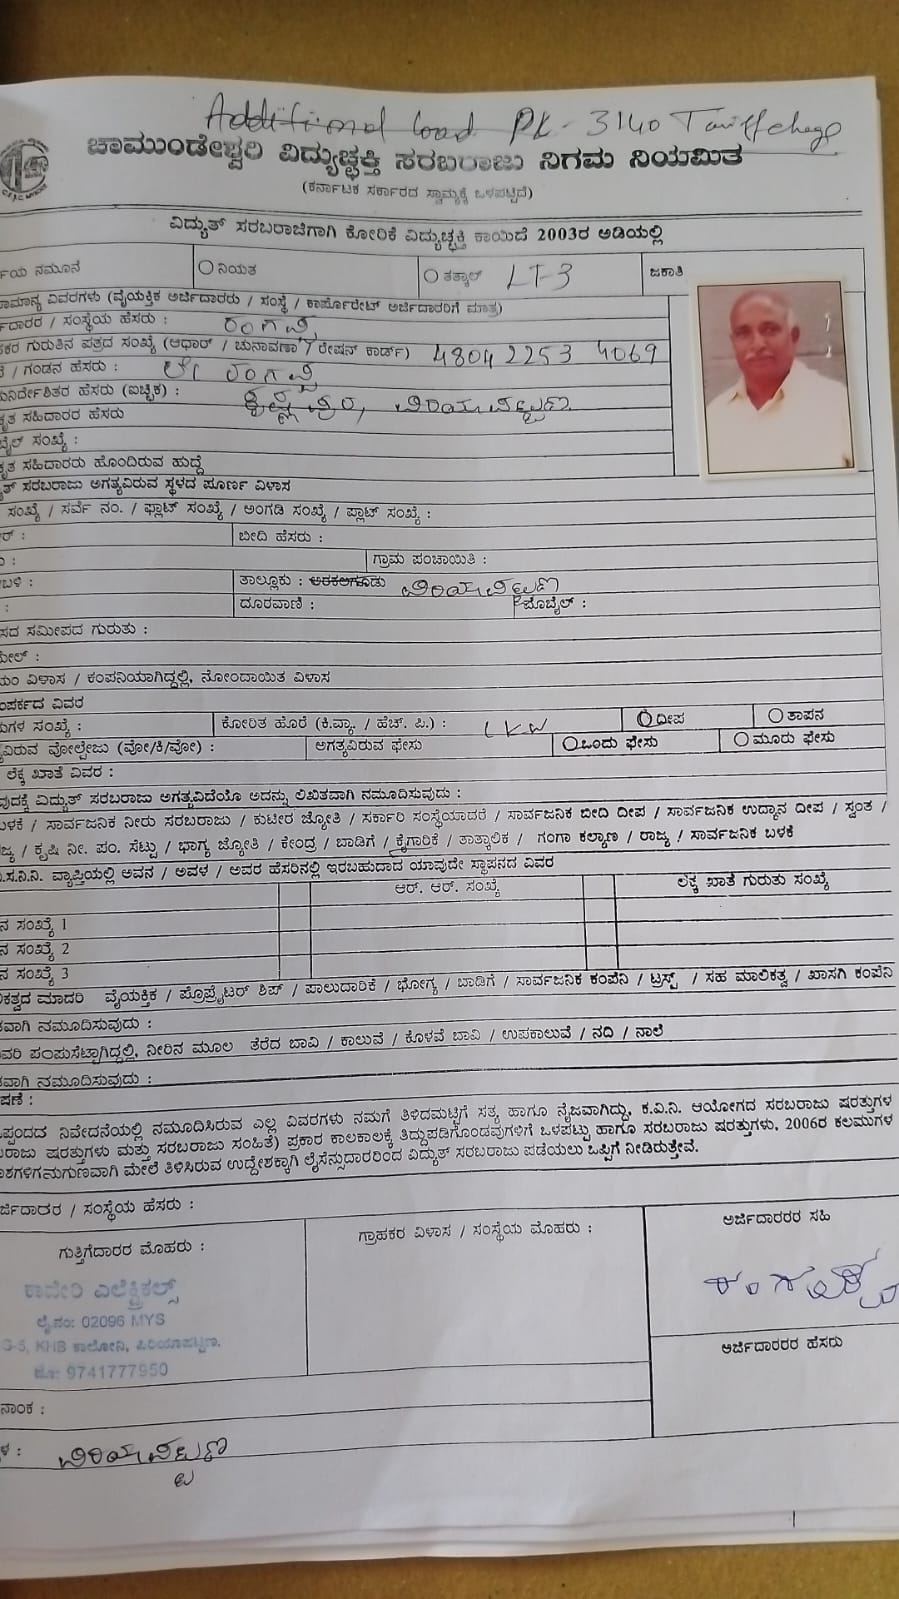 Additional load PK-3140 Tariff change
ಚಾಮುಂಡೇಶ್ವರಿ ವಿದ್ಯುಚ್ಛಕ್ತಿ ಸರಬರಾಜು ನಿಗಮ ನಿಯಮಿತ
(ಕರ್ನಾಟಕ ಸರ್ಕಾರದ ಸ್ವಾಮ್ಯಕ್ಕೆ ಒಳಪಟ್ಟಿದೆ)
ವಿದ್ಯುತ್ ಸರಬರಾಜಿಗಾಗಿ ಕೋರಿಕೆ ವಿದ್ಯುಚ್ಛಕ್ತಿ ಕಾಯಿದೆ 2003ರ ಅಡಿಯಲ್ಲಿ
ನಮೂನೆ ನಿಯತ ತತ್ಕಾಲ್ LT-3 ಜಕಾತಿ
ವಿವರಗಳು (ವೈಯಕ್ತಿಕ ಅರ್ಜಿದಾರರು / ಸಂಸ್ಥೆ / ಕಾರ್ಪೊರೇಟ್ ಅರ್ಜಿದಾರರಿಗೆ ಮಾತ್ರ)
/ ಸಂಸ್ಥೆಯ ಹೆಸರು :
ಗುರುತಿನ ಪತ್ರದ ಸಂಖ್ಯೆ (ಆಧಾರ್ / ಚುನಾವಣಾ / ರೇಷನ್ ಕಾರ್ಡ್) 4804 2253 4069
/ ಗಂಡನ ಹೆಸರು :
ಹೆಸರು (ಐಚ್ಛಿಕ) :
ಸಹಿದಾರರ ಹೆಸರು
ಸಂಖ್ಯೆ :
ಸಹಿದಾರರು ಹೊಂದಿರುವ ಹುದ್ದೆ
ಸರಬರಾಜು ಅಗತ್ಯವಿರುವ ಸ್ಥಳದ ಪೂರ್ಣ ವಿಳಾಸ
ಸಂಖ್ಯೆ / ಸರ್ವೆ ನಂ. / ಫ್ಲಾಟ್ ಸಂಖ್ಯೆ / ಅಂಗಡಿ ಸಂಖ್ಯೆ / ಪ್ಲಾಟ್ ಸಂಖ್ಯೆ :
ಬೀದಿ ಹೆಸರು :
ಗ್ರಾಮ ಪಂಚಾಯಿತಿ :
ತಾಲ್ಲೂಕು :
ದೂರವಾಣಿ : ಮೊಬೈಲ್ :
ಸಮೀಪದ ಗುರುತು :
ವಿಳಾಸ / ಕಂಪನಿಯಾಗಿದ್ದಲ್ಲಿ, ನೋಂದಾಯಿತ ವಿಳಾಸ
ವಿವರ
ಸಂಖ್ಯೆ : ಕೋರಿತ ಹೊರೆ (ಕಿ.ವ್ಯಾ. / ಹೆಚ್. ಪಿ.) : 1 KW ದೀಪ ತಾಪನ
ವೋಲ್ಟೇಜು (ವೋ/ಕಿ/ವೋ) : ಅಗತ್ಯವಿರುವ ಫೇಸು ಒಂದು ಫೇಸು ಮೂರು ಫೇಸು
ಲೆಕ್ಕ ಖಾತೆ ವಿವರ :
ವಿದ್ಯುತ್ ಸರಬರಾಜು ಅಗತ್ಯವಿದೆಯೊ ಅದನ್ನು ಲಿಖಿತವಾಗಿ ನಮೂದಿಸುವುದು :
/ ಸಾರ್ವಜನಿಕ ನೀರು ಸರಬರಾಜು / ಕುಟೀರ ಜ್ಯೋತಿ / ಸರ್ಕಾರಿ ಸಂಸ್ಥೆಯಾದರೆ / ಸಾರ್ವಜನಿಕ ಬೀದಿ ದೀಪ / ಸಾರ್ವಜನಿಕ ಉದ್ಯಾನ ದೀಪ / ಸ್ವಂತ /
/ ಕೃಷಿ ನೀ. ಪಂ. ಸೆಟ್ಟು / ಭಾಗ್ಯ ಜ್ಯೋತಿ / ಕೇಂದ್ರ / ಬಾಡಿಗೆ / ಕೈಗಾರಿಕೆ / ತಾತ್ಕಾಲಿಕ / ಗಂಗಾ ಕಲ್ಯಾಣ / ರಾಜ್ಯ / ಸಾರ್ವಜನಿಕ ಬಳಕೆ
ವ್ಯಾಪ್ತಿಯಲ್ಲಿ ಅವನ / ಅವಳ / ಅವರ ಹೆಸರಿನಲ್ಲಿ ಇರಬಹುದಾದ ಯಾವುದೇ ಸ್ಥಾಪನದ ವಿವರ
ಆರ್. ಆರ್. ಸಂಖ್ಯೆ ಲೆಕ್ಕ ಖಾತೆ ಗುರುತು ಸಂಖ್ಯೆ
ಸಂಖ್ಯೆ 1
ಸಂಖ್ಯೆ 2
ಸಂಖ್ಯೆ 3
ಮಾದರಿ ವೈಯಕ್ತಿಕ / ಪ್ರೊಪ್ರೈಟರ್ ಶಿಪ್ / ಪಾಲುದಾರಿಕೆ / ಭೋಗ್ಯ / ಬಾಡಿಗೆ / ಸಾರ್ವಜನಿಕ ಕಂಪೆನಿ / ಟ್ರಸ್ಟ್ / ಸಹ ಮಾಲಿಕತ್ವ / ಖಾಸಗಿ ಕಂಪೆನಿ
ನಮೂದಿಸುವುದು :
ಪಂಪುಸೆಟ್ಟಾಗಿದ್ದಲ್ಲಿ, ನೀರಿನ ಮೂಲ ತೆರೆದ ಬಾವಿ / ಕಾಲುವೆ / ಕೊಳವೆ ಬಾವಿ / ಉಪಕಾಲುವೆ / ನದಿ / ನಾಲೆ
ನಮೂದಿಸುವುದು :
ನಿವೇದನೆಯಲ್ಲಿ ನಮೂದಿಸಿರುವ ಎಲ್ಲ ವಿವರಗಳು ನಮಗೆ ತಿಳಿದಮಟ್ಟಿಗೆ ಸತ್ಯ ಹಾಗೂ ನೈಜವಾಗಿದ್ದು, ಕ.ವಿ.ನಿ. ಆಯೋಗದ ಸರಬರಾಜು ಷರತ್ತುಗಳ
ಷರತ್ತುಗಳು ಮತ್ತು ಸರಬರಾಜು ಸಂಹಿತೆ) ಪ್ರಕಾರ ಕಾಲಕಾಲಕ್ಕೆ ತಿದ್ದುಪಡಿಗೊಂಡವುಗಳಿಗೆ ಒಳಪಟ್ಟು ಹಾಗೂ ಸರಬರಾಜು ಷರತ್ತುಗಳು, 2006ರ ಕಲಮುಗಳ
ಮೇಲೆ ತಿಳಿಸಿರುವ ಉದ್ದೇಶಕ್ಕಾಗಿ ಲೈಸೆನ್ಸುದಾರರಿಂದ ವಿದ್ಯುತ್ ಸರಬರಾಜು ಪಡೆಯಲು ಒಪ್ಪಿಗೆ ನೀಡಿರುತ್ತೇವೆ.
/ ಸಂಸ್ಥೆಯ ಹೆಸರು :
ಗುತ್ತಿಗೆದಾರರ ಮೊಹರು : ಗ್ರಾಹಕರ ವಿಳಾಸ / ಸಂಸ್ಥೆಯ ಮೊಹರು : ಅರ್ಜಿದಾರರ ಸಹಿ
ಕಾವೇರಿ ಎಲೆಕ್ಟ್ರಿಕಲ್ಸ್
ಲೈ.ನಂ: 02096 MYS
G-5, KHB ಕಾಲೋನಿ, ಪಿರಿಯಾಪಟ್ಟಣ.
ಮೊ: 9741777950
ಅರ್ಜಿದಾರರ ಹೆಸರು